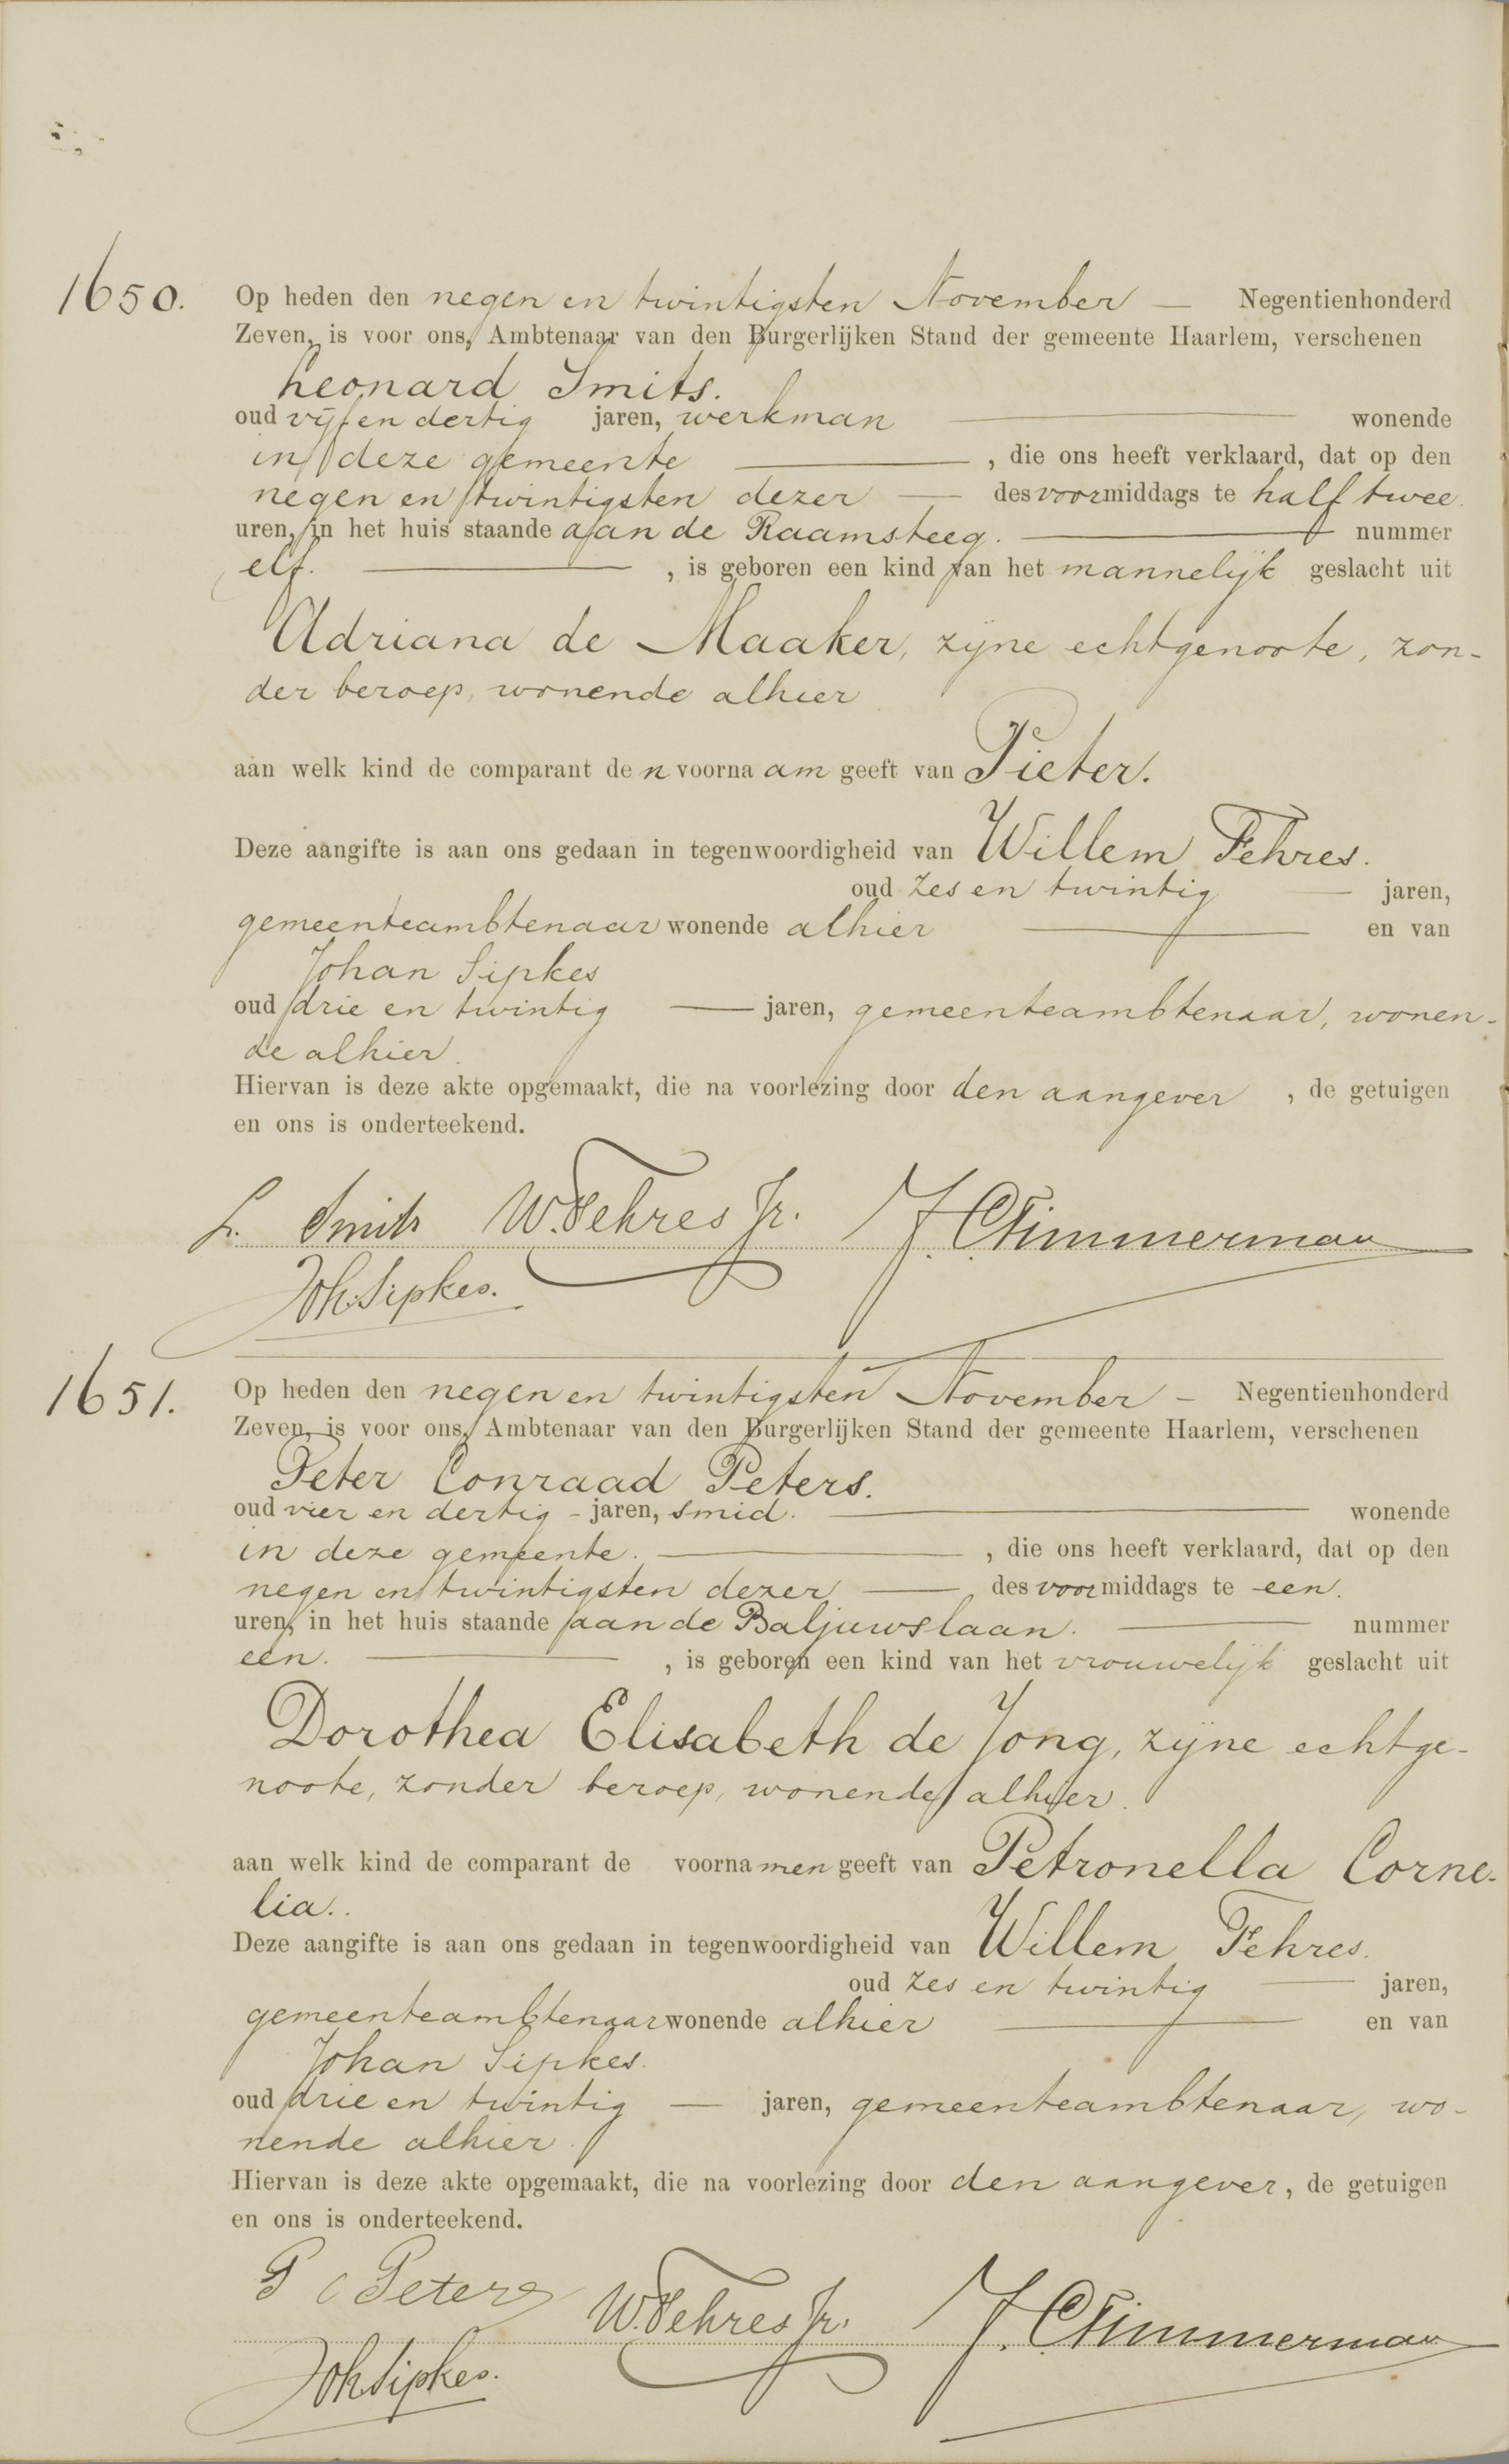 1650.
Op heden den negen en twintigsten November — Negentienhonderd
Zeven, is voor ons, Ambtenaar van den Burgerlijken Stand der gemeente Haarlem, verschenen
Leonard Smits.
oud vijf en dertig jaren, werkman — wonende
in deze gemeente —, die ons heeft verklaard, dat op den
negen en twintigsten dezer — des voormiddags te half twee
uren, in het huis staande aan de Raamsteeg. — nummer
elf. —, is geboren een kind van het mannelijk geslacht uit
Adriana de Maaker, zijne echtgenoote, zon-
der beroep, wonende alhier
aan welk kind de comparant den voornaam geeft van Pieter.
Deze aangifte is aan ons gedaan in tegenwoordigheid van Willem Fehres.
oud zes en twintig — jaren,
gemeenteambtenaar wonende alhier — en van
Johan Sipkes
oud drie en twintig — jaren, gemeenteambtenaar, wonen-
de alhier.
Hiervan is deze akte opgemaakt, die na voorlezing door den aangever, de getuigen
en ons is onderteekend.
L. Smits W. Fehres Jr. J. C. Timmerman
Joh. Sipkes.
1651.
Op heden den negen en twintigsten November — Negentienhonderd
Zeven, is voor ons, Ambtenaar van den Burgerlijken Stand der gemeente Haarlem, verschenen
Peter Conraad Peters.
oud vier en dertig - jaren, smid. — wonende
in deze gemeente. —, die ons heeft verklaard, dat op den
negen en twintigsten dezer — des voormiddags te een.
uren, in het huis staande aan de Baljuwslaan. — nummer
een. —, is geboren een kind van het vrouwelijk geslacht uit
Dorothea Elisabeth de Jong, zijne echtge-
noote, zonder beroep, wonende alhier.
aan welk kind de comparant de voornamen geeft van Petronella Corne-
lia..
Deze aangifte is aan ons gedaan in tegenwoordigheid van Willem Fehres.
oud zes en twintig — jaren,
gemeenteambtenaar wonende alhier — en van
Johan Sipkes.
oud drie en twintig — jaren, gemeenteambtenaar, wo-
nende alhier.
Hiervan is deze akte opgemaakt, die na voorlezing door den aangever, de getuigen
en ons is onderteekend.
P C Peters W. Fehres Jr. J. C. Timmerman
Joh Sipkes.